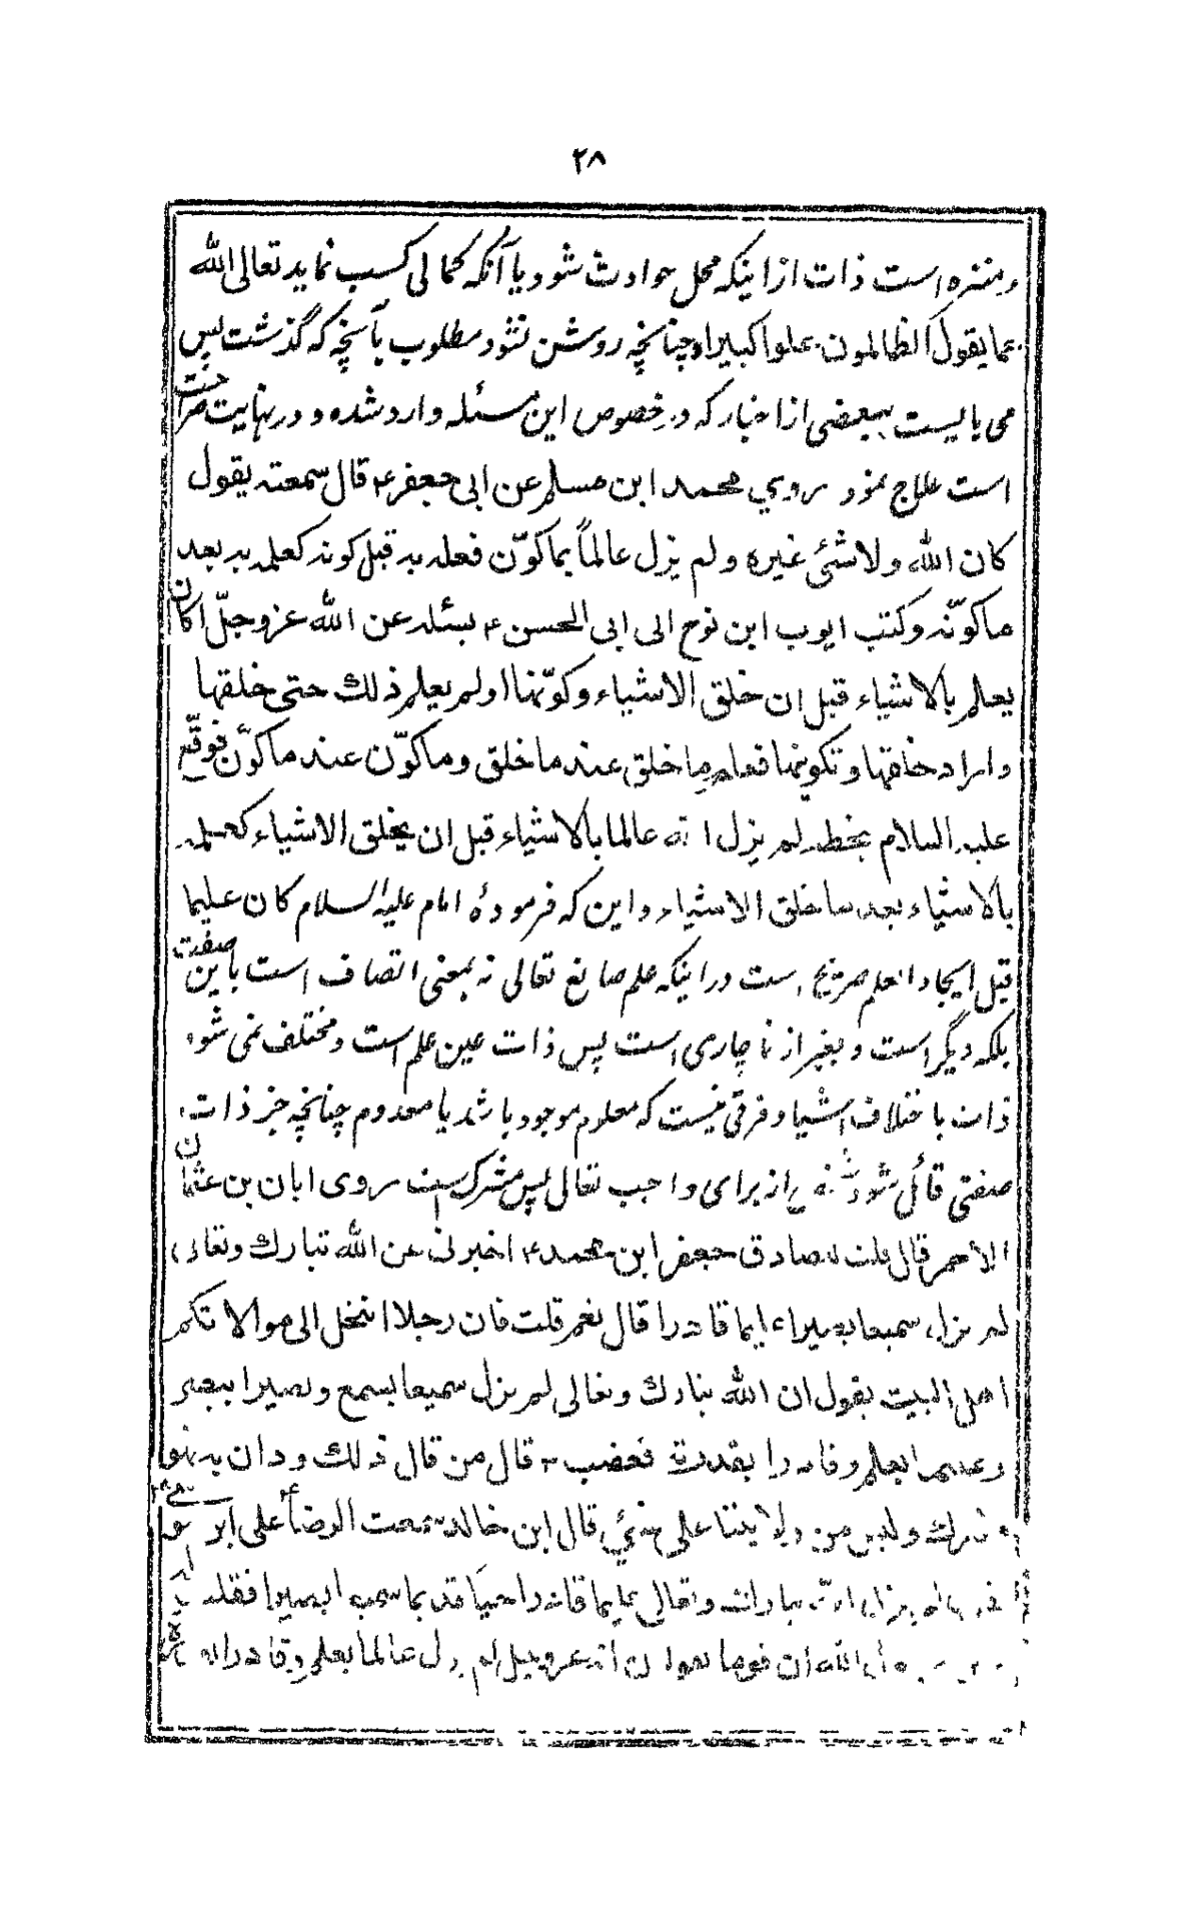 ۲۸
و منزه است ذات از اینکه محل حوادث شود یا آنکه کمالی کسب نماید تعالی الله
عما یقول الظالمون علوا کبیرا و چنانچه روشن نشود مطلوب بآنچه که گذشت پس
می بایست ببعضی از اخبار که در خصوص این مسئله وارد شده و در نهایت صراحت
است علاج نمود روي محمد ابن مسلم عن ابی جعفر ع قال سمعته یقول
کان الله ولا شئ غیره ولم یزل عالماً بما کوّن فعلمه به قبل کونه کعلمه به بعد
ما کوّنه وکتب ایوب ابن نوح الی ابی الحسن ع یسئله عن الله عز وجلّ اکان
یعلم بالاشیاء قبل ان خلق الاشیاء وکوّنها اولم یعلم ذلك حتی خلقها
واراد خلقها وتکوینها فعلم ما خلق عند ما خلق وما کوّن عند ما کوّن فوقّع
علیه السلام بخطه لم یزل الله عالما بالاشیاء قبل ان یخلق الاشیاء کعلمه
بالاشیاء بعد ما خلق الاشیاء و این که فرمودهٔ امام علیه السلام کان علیما
قبل ایجاد العلم صریح است در اینکه علم صانع تعالی نه بمعنی اتصاف است باین صفت
بلکه دیگر است و بغیر از ناچاری است پس ذات عین علم است و مختلف نمی شود
ذات باختلاف اشیا و فرقی نیست که معلوم موجود باشد یا معدوم چنانچه جز ذات
صفتی قائل شود از برای واجب تعالی پس مشرک است روی ابان بن عثمان
الاحمر قال قلت للصادق جعفر ابن محمد ع اخبرنی عن الله تبارك وتعالی
لم یزل سمیعا بصیرا علیما قادرا قال نعم قلت فان رجلا انتحل الی موالاتکم
اهل البیت یقول ان الله تبارك وتعالی لم یزل سمیعا بسمع وبصیرا ببصر
وعلیما بعلم وقادرا بقدرة فغضب ع قال من قال ذلك ودان به فهو
مشرك ولیس من ولایتنا علی شئي قال ابن خالد سمعت الرضا ع علی ابن موسی
یقول لم یزل الله تبارك وتعالی علیما قادرا حیّا قدیما سمیعا بصیرا فقلت له
یابن رسول الله ان قوما یقولون انه عز وجل لم یزل عالما بعلم وقادرا